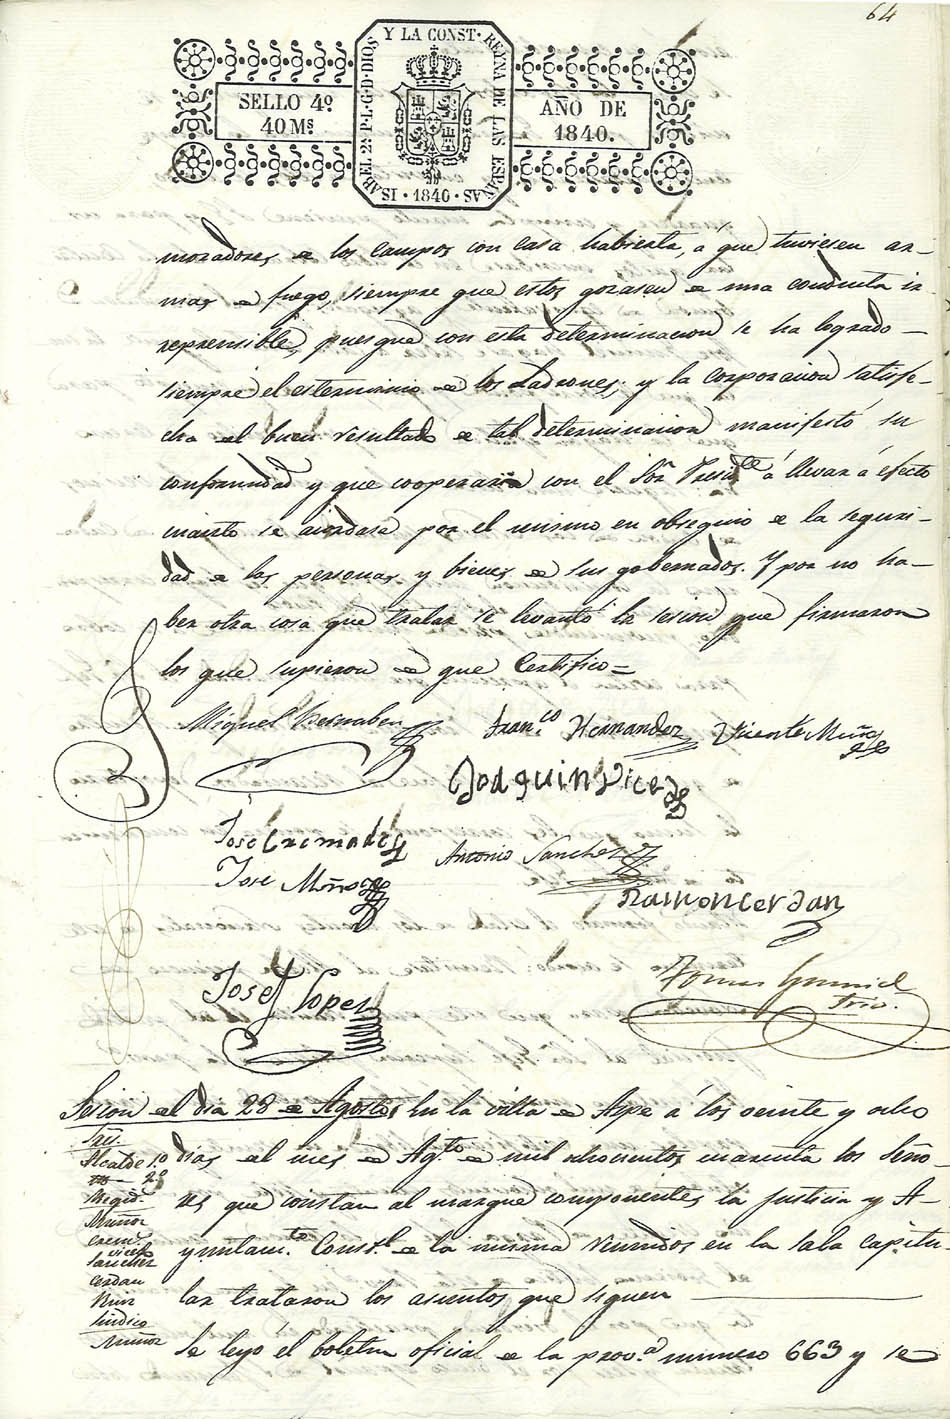 64
SELLO 4º
40 Mˢ
ISABEL 2ª P. L. G. D. DIOS Y LA CONST. REYNA DE LAS ESPAÑAS
· 1840 ·
AÑO DE
1840.
moradores de los campos con casa habierta, á que tuviesen ar-
mas de fuego, siempre que estos gozasen de una conducta ir-
reprensible, pues que con esta determinacion se ha logrado
siempre el esterminio de los Ladrones; y la corporacion satisfe-
cha del buen resultado de tal determinacion manifestó su
conformidad y que cooperaria con el Sor Presidte á llevar á efecto
cuanto se acordara por el mismo en obsequio de la seguri-
dad de las personas y bienes de sus gobernados. Y por no ha-
ber otra cosa que tratar se levantó la sesion que firmaron
los que supieron de que Certifico=
Miguel Bernabeu
Franco Hernandez
Vicente Muñoz
Joaquin Vicedo
José Cremades
Antonio Sanchez
José Muñoz
Ramon Cerdan
José Lopez
Tomas
Srio.
Sesion del dia 28 de Agosto
En la villa de Aspe á los veinte y ocho
dias del mes de Agto de mil ochocientos cuarenta los Seño-
res que constan al margen componentes la Justicia y A-
yuntamto Constl de la misma reunidos en la sala capitu-
lar trataron los asuntos que siguen
Se leyó el boletin oficial de la provª numero 663 y se
Sres.
Alcalde 1º
2º
Regid.
Muñoz
Crem.
Vicedo
Sanchez
Cerdan
Ruiz
Sindico
Muñoz